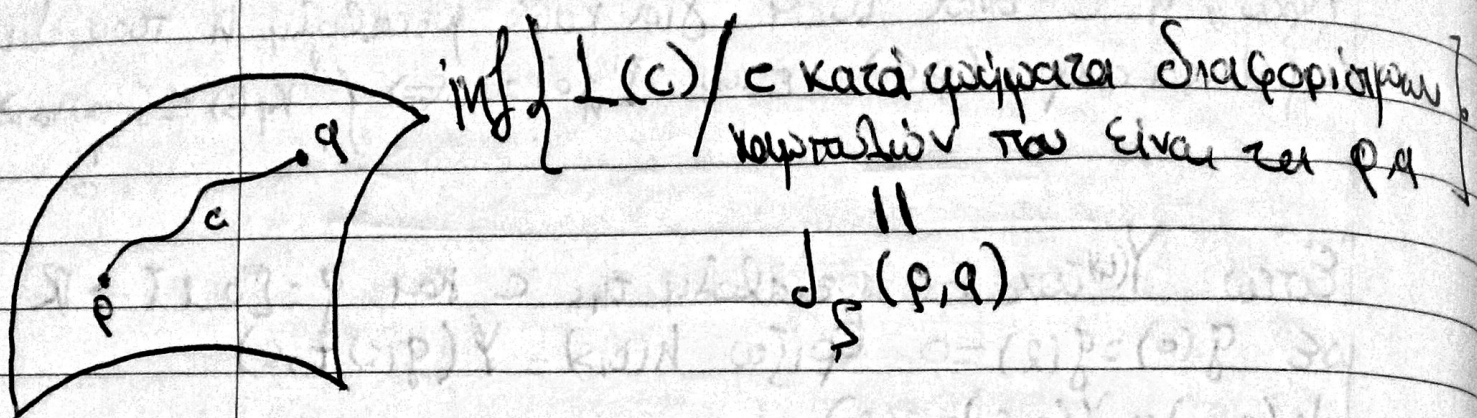 inf { L(c) / c κατά τμήματα διαφορίσιμων
καμπυλών που είναι τα p,q
q
c
p
||
d_S (p,q)